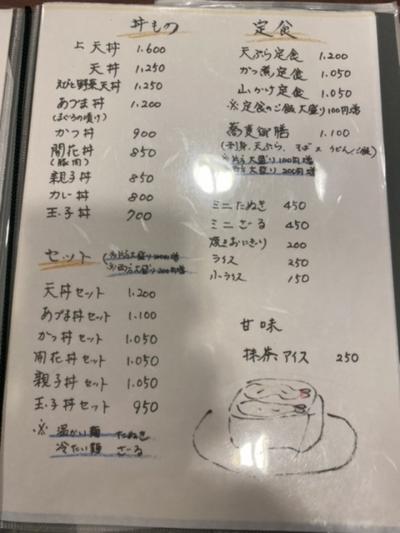 丼もの
上 天丼 1.600
天丼 1.250
えびと野菜天丼 1.250
あづま丼 1.200
(まぐろの漬け)
かつ丼 900
開花丼 850
(豚肉)
親子丼 850
カレー丼 800
玉子丼 700
セット
天丼セット 1.200
あづま丼セット 1.100
かつ丼セット 1.050
開花丼セット 1.050
親子丼セット 1.050
玉子丼セット 950
※ 温かい麺 たぬき
冷たい麺 ざる
定食
天ぷら定食 1.200
かつ煮定食 1.050
山かけ定食 1.050
※定食のご飯大盛り100円増
蕎麦御膳 1.100
(刺身、天ぷら、そば又うどん、ご飯)
大盛り100円増
大盛り200円増
ミニたぬき 450
ミニざる 450
焼きおにぎり 200
ライス 250
小ライス 150
甘味
抹茶アイス 250